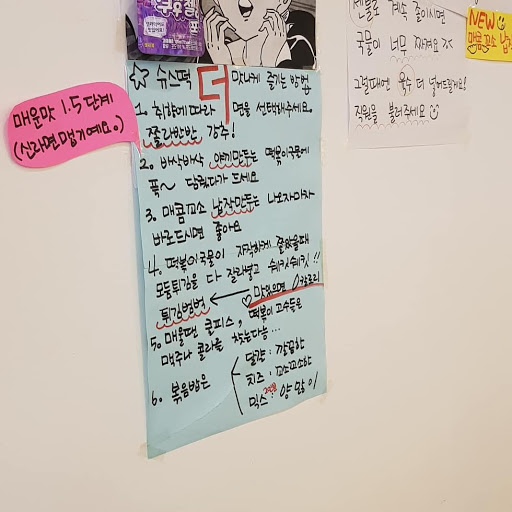 매운맛 1.5단계
(신라면맵기예요。)
☆ 슈스떡 더 맛나게 즐기는 방법
1. 취향에 따라 면을 선택해주세요.
쫄라반반 강추!
2. 바삭바삭 야끼만두는 떡볶이국물에
푹~ 담궜다가 드세요
3. 매콤꼬소 납작만두는 나오자마자
바로드시면 좋아요
4. 떡볶이국물이 자작하게 졸았을때
모둠튀김을 다 잘라넣고 쉐키쉐키!!
튀김범벅 ← ♡맛있으면 0칼로리
5. 매울땐 쿨피스, 떡볶이 고수들은
맥주나 콜라를 찾는다능...
6. 볶음밥은
달걀 : 깔끔한
치즈 : 꼬소꼬소한
믹스 : 양 많이
계속 졸이시면
국물이 너무 짜져요
그럴때엔 육수 더 넣어드릴게요!
직원을 불러주세요
NEW
매콤꼬소 납작